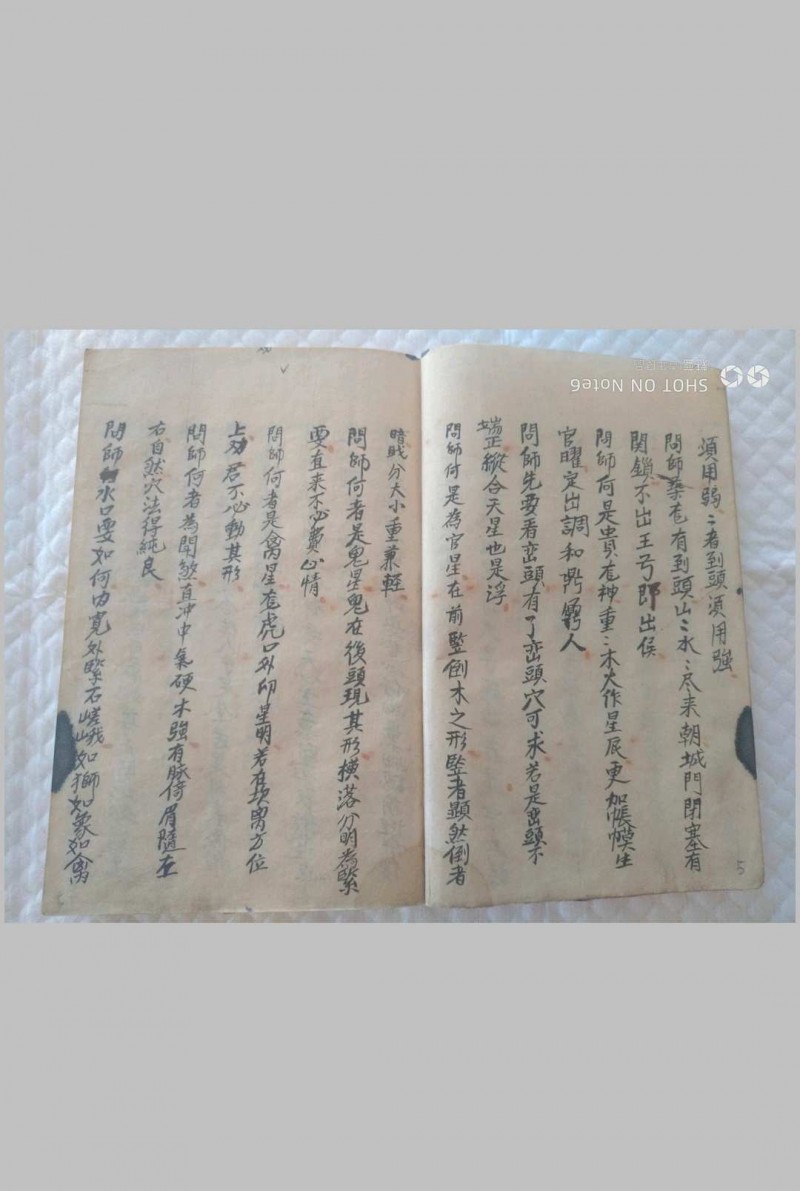 須用弱〻者到頭須用強
問師葬在有到頭山〻水〻尽来朝城門閉塞有
関鎖不出王亏即出侯
問師何是貴在神重〻木火作星辰更加帳幙生
官曜定出調和鼎鼐人
問師先要看峦頭有了峦頭穴可求若是峦頭不
端正縱合天星也是浮
問師何是為官星在前豎倒木之形豎者顯然倒者
暗戝分大小重兼輕
問師何者是鬼星鬼在後頭現其形橫落分明為緊
要直来不必費心情
問師何者是禽星在虎口外卯星明若在坟
方位
上劝君不必動其形
問師何者為閗煞直沖中氣硬木強有脉倚眉隨左
右自然穴法得純良
問師水口要如何内寛外緊石嵯峨如獅如象如禽
SHOT ON Note6
5